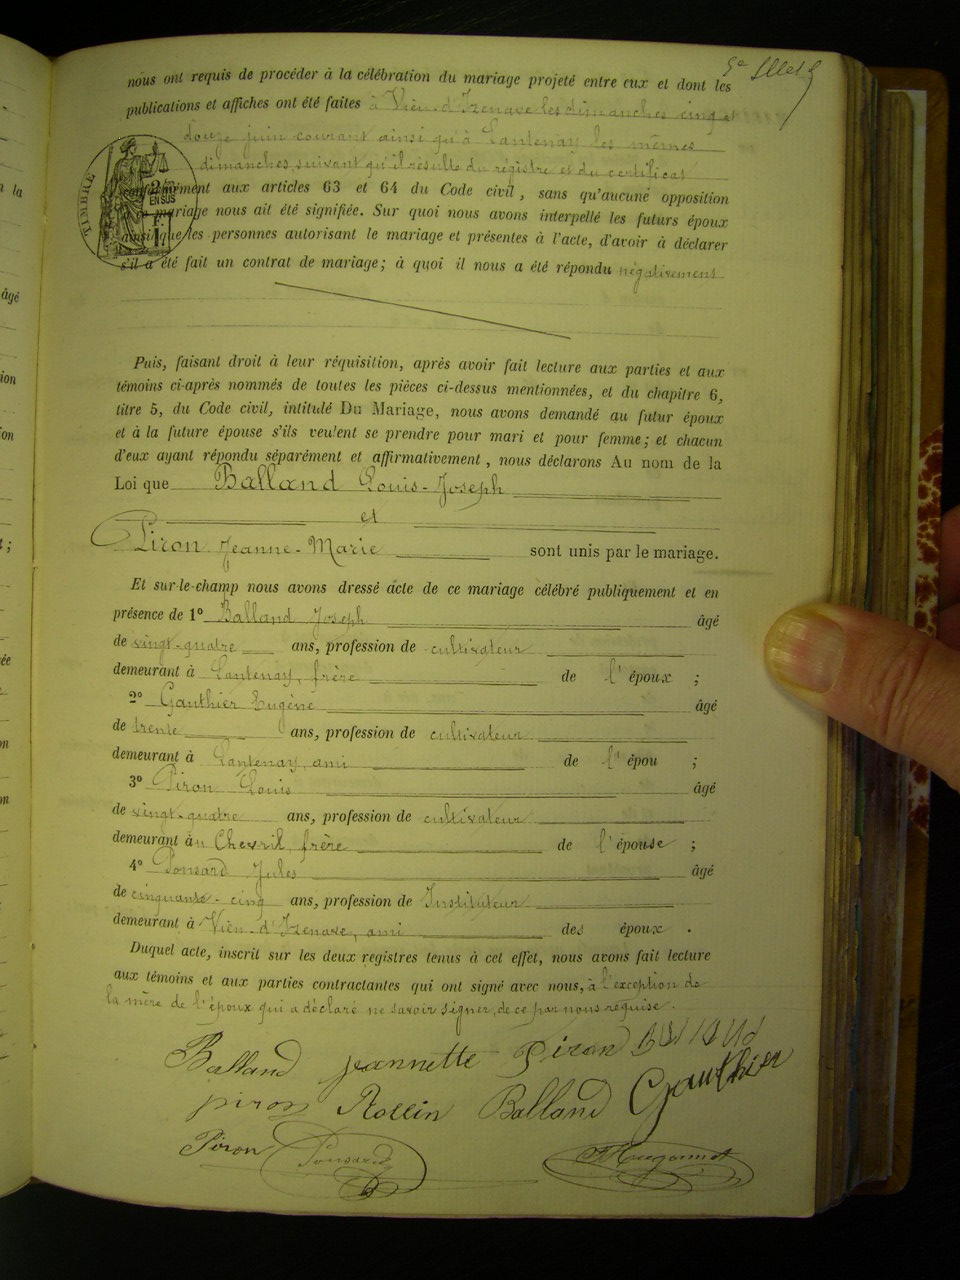 nous ont requis de procéder à la célébration du mariage projeté entre eux et dont les
publications et affiches ont été faites à Vieu-d'Izenave les dimanches cinq et
douze juin courant ainsi qu'à Lantenay les mêmes
dimanches, suivant qu'il résulte du registre et du certificat
conformément aux articles 63 et 64 du Code civil, sans qu'aucune opposition
au mariage nous ait été signifiée. Sur quoi nous avons interpellé les futurs époux
ainsi que les personnes autorisant le mariage et présentes à l'acte, d'avoir à déclarer
s'il a été fait un contrat de mariage; à quoi il nous a été répondu négativement
TIMBRE
EN SUS
Puis, faisant droit à leur réquisition, après avoir fait lecture aux parties et aux
témoins ci-après nommés de toutes les pièces ci-dessus mentionnées, et du chapitre 6,
titre 5, du Code civil, intitulé Du Mariage, nous avons demandé au futur époux
et à la future épouse s'ils veulent se prendre pour mari et pour femme; et chacun
d'eux ayant répondu séparément et affirmativement, nous déclarons Au nom de la
Loi que Balland Louis-Joseph
et
Piron Jeanne-Marie sont unis par le mariage.
Et sur-le-champ nous avons dressé acte de ce mariage célébré publiquement et en
présence de 1° Balland Joseph âgé
de vingt-quatre ans, profession de cultivateur
demeurant à Lantenay, frère de l'époux ;
2° Gauthier Eugène âgé
de trente ans, profession de cultivateur
demeurant à Lantenay, ami de l'épou ;
3° Piron Louis âgé
de vingt-quatre ans, profession de cultivateur
demeurant au Chevril, frère de l'épouse ;
4° Ponsard Jules âgé
de cinquante-cinq ans, profession de Instituteur
demeurant à Vieu-d'Izenave, ami des époux .
Duquel acte, inscrit sur les deux registres tenus à cet effet, nous avons fait lecture
aux témoins et aux parties contractantes qui ont signé avec nous, à l'exception de
la mère de l'époux qui a déclaré ne savoir signer, de ce par nous requise.
Balland Jeannette Piron
piron Rollin Balland Gauthier
Piron Ponsard Hugonnet